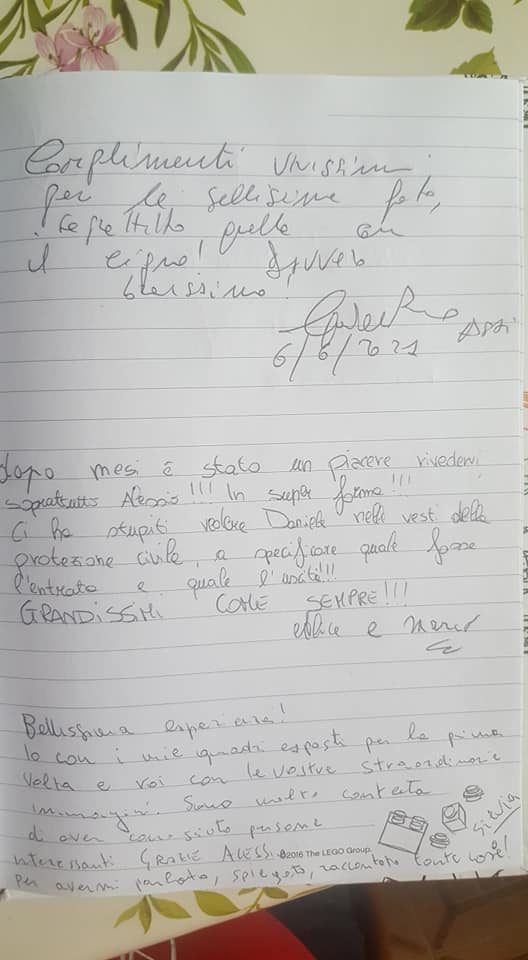 Complimenti vivissimi
per le bellissime foto,
quelle con
il cigno! Davvero
bravissimo!
6/6/2021
dopo mesi è stato un piacere rivedervi
soprattutto Alessio!!! In super forma!!!
Ci ha stupiti vedere Daniele nelle vesti della
protezione civile, a specificare quale fosse
l'entrata e quale l'uscita!!!
GRANDISSIMI COME SEMPRE!!!
e
Bellissima esperienza!
Io con i miei quadri esposti per la prima
volta e voi con le vostre straordinarie
immagini. Sono molto contenta
di aver conosciuto persone
interessanti GRAZIE ALESSI ©2016 The LEGO Group.
per avermi parlato, spiegato, raccontato tante cose!
Silvia